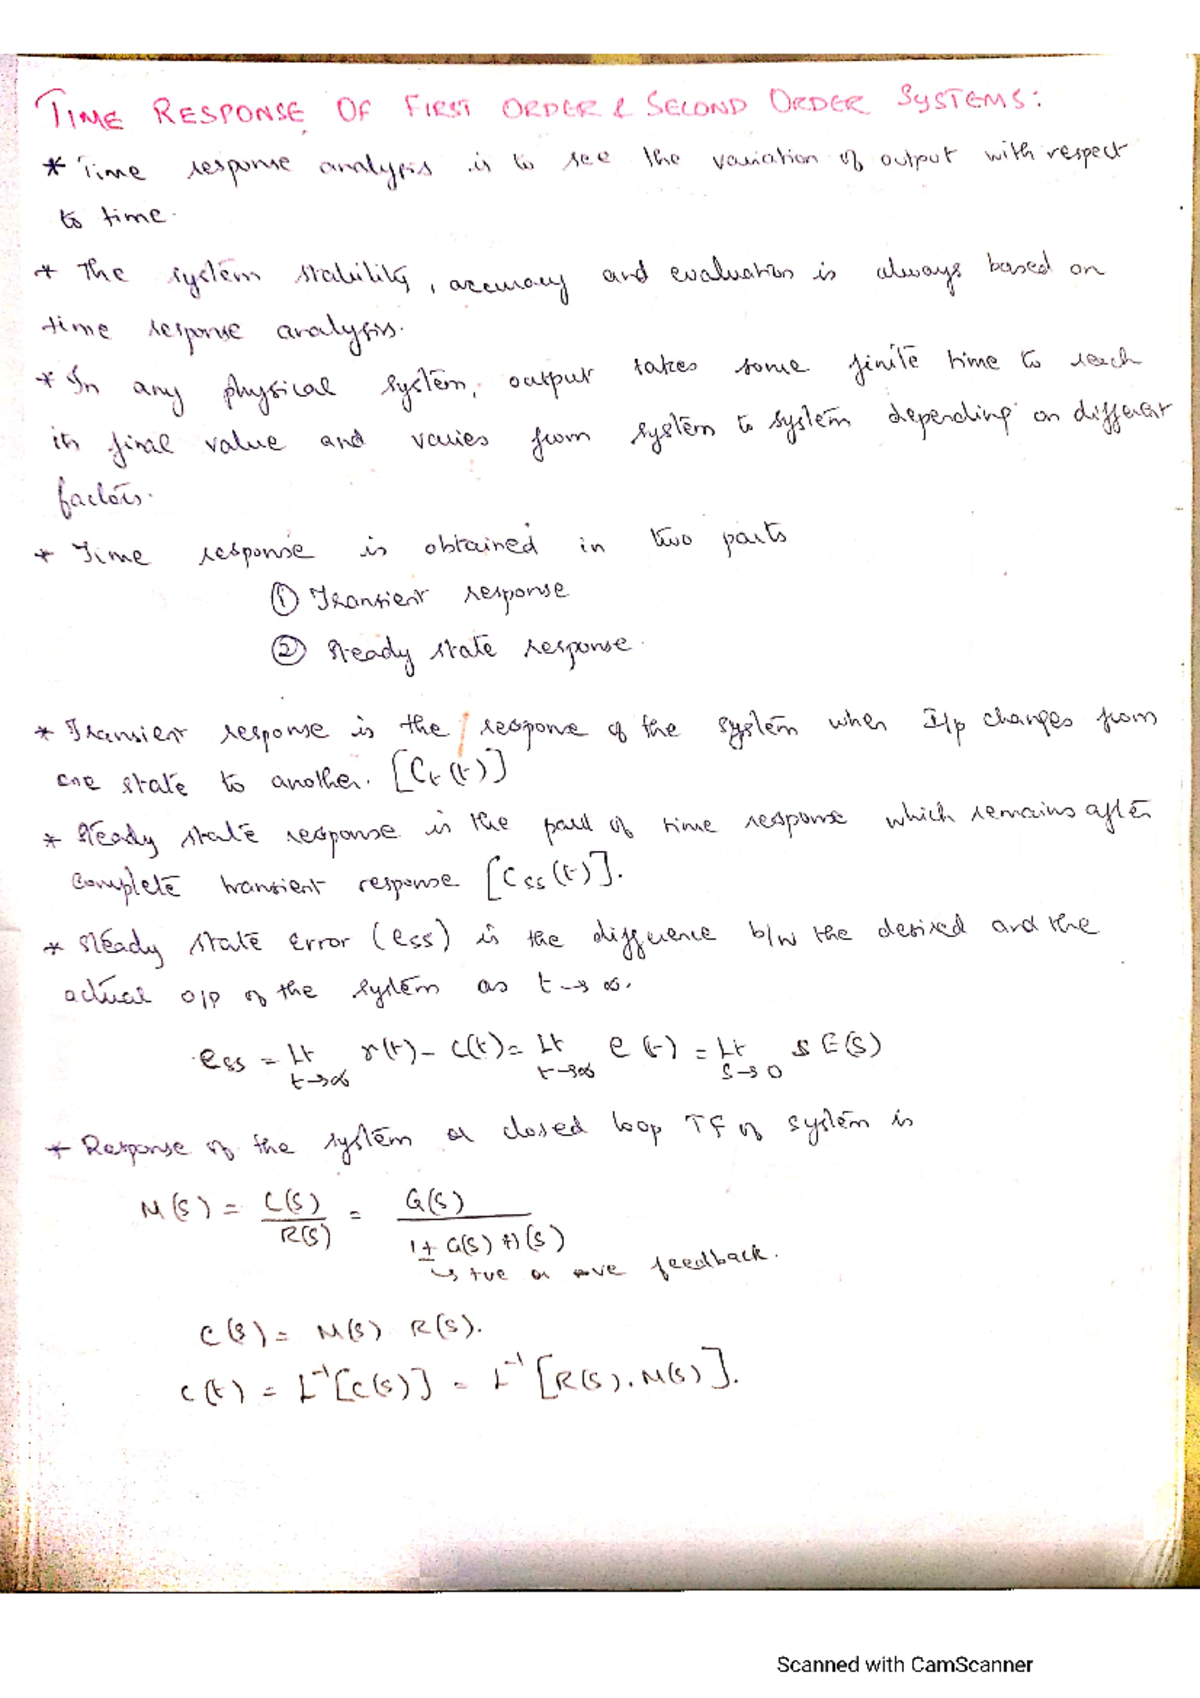 TIME RESPONSE OF FIRST ORDER & SECOND ORDER SYSTEMS:
* Time response analysis is to see the variation of output with respect
to time.
* The system stability, accuracy and evaluation is always based on
time response analysis.
* In any physical system, output takes some finite time to reach
its final value and varies from system to system depending on different
factors.
* Time response is obtained in two parts
① Transient response
② Steady state response.
* Transient response is the response of the system when I/p changes from
one state to another. [Ct(t)]
* Steady state response is the part of time response which remains after
complete transient response [Css(t)].
* Steady state error (ess) is the difference b/w the desired and the
actual o/p of the system as t→∞.
ess = Lt r(t) - c(t) = Lt e(t) = Lt s E(s)
t→∞ t→∞ s→0
* Response of the system or closed loop TF of system is
M(s) = C(s)/R(s) = G(s)/1± G(s) H(s)
↳ +ve or -ve feedback.
C(s) = M(s) R(s).
c(t) = L⁻¹[C(s)] = L⁻¹[R(s).M(s)].
Scanned with CamScanner